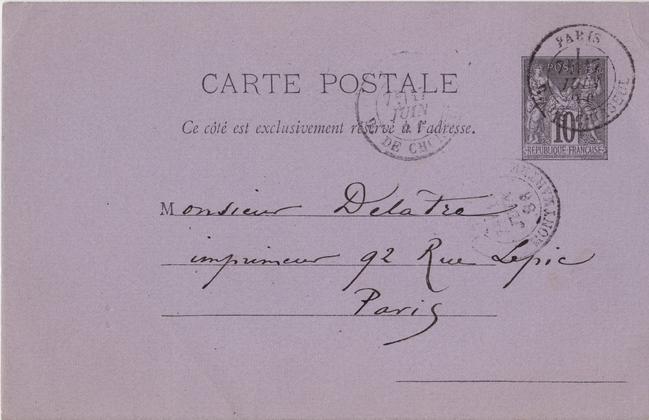 PARIS
JUIN
POSTES
10
REPUBLIQUE FRANÇAISE
CARTE POSTALE
JUIN
DE
Ce côté est exclusivement réservé à l'adresse.
MONTMARTRE
Monsieur Delatre
imprimeur 92 Rue Lepic
Paris